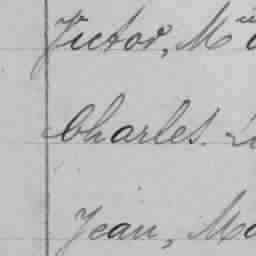 Victor, M
Charles. L
Jean, Ma